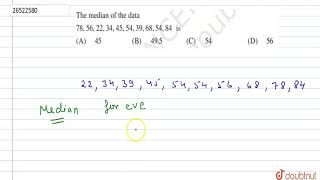 26522580
The median of the data
78, 56, 22, 34, 45, 54, 39, 68, 54, 84 is
(A) 45 (B) 49.5 (C) 54 (D) 56
22, 34, 39, 45, 54, 54, 56, 68, 78, 84
Median for eve
doubtnut